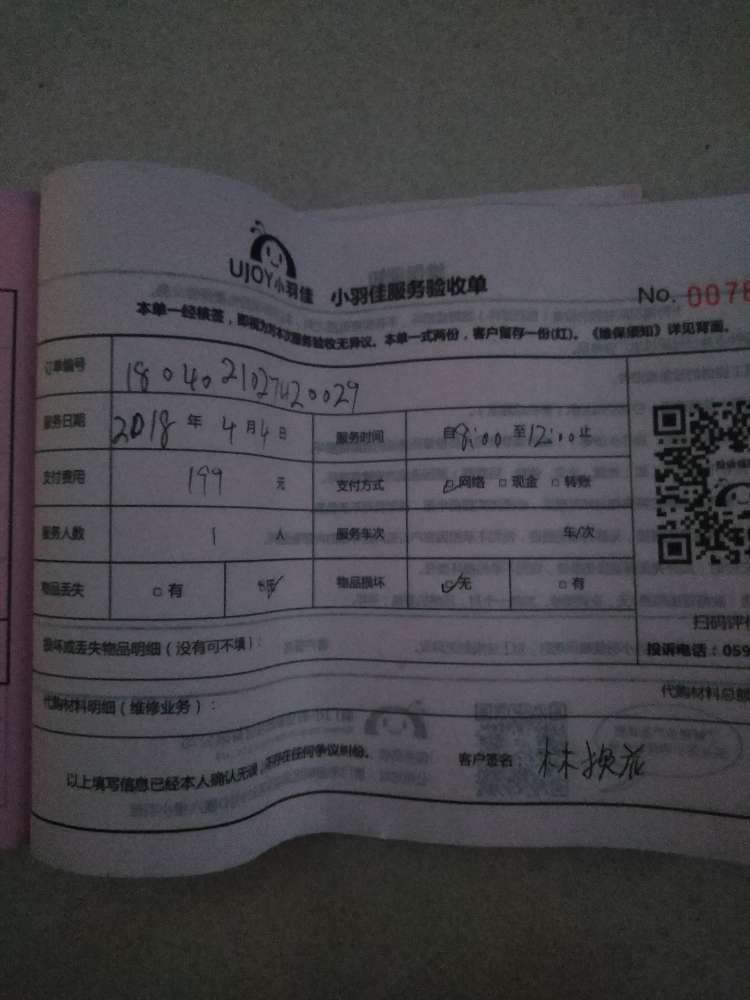 UJOY小羽佳
小羽佳服务验收单
No. 0076
本单一经核签，即视为对本次服务验收无异议。本单一式两份，客户留存一份(红)。《维保须知》详见背面。
订单编号 1804021027420029
服务日期 2018 年 4 月 4 日 服务时间 自 8:00 至 12:00 止
支付费用 199 元 支付方式 ☑网络 □现金 □转账
服务人数 1 人 服务车次 车/次
物品丢失 □有 ☑无 物品损坏 ☑无 □有
损坏或丢失物品明细（没有可不填）：
扫码评
投诉电话：059
代购材料明细（维修业务）： 代购材料总
以上填写信息已经本人确认无误，不存在任何争议纠纷。 客户签名：林换